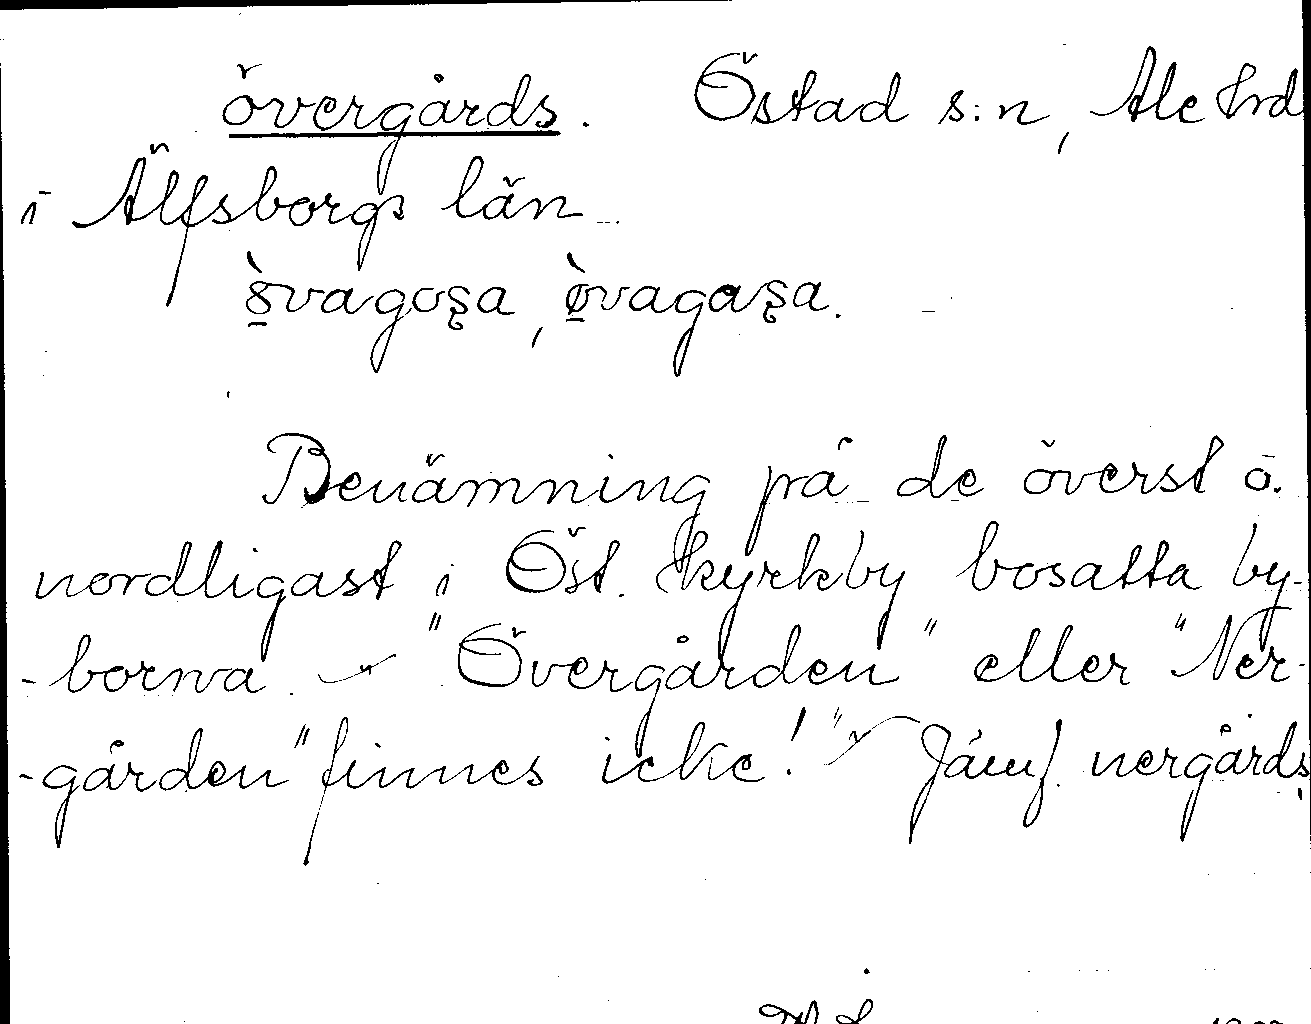 övergårds. Östad s:n, Ale hrd
i Älfsborgs län.
Benämning på de överst o.
nordligast i Öst. kyrkby bosatta by-
-borna. "Övergården" eller "Ner-
-gården" finnes icke! Jämf. nergårds